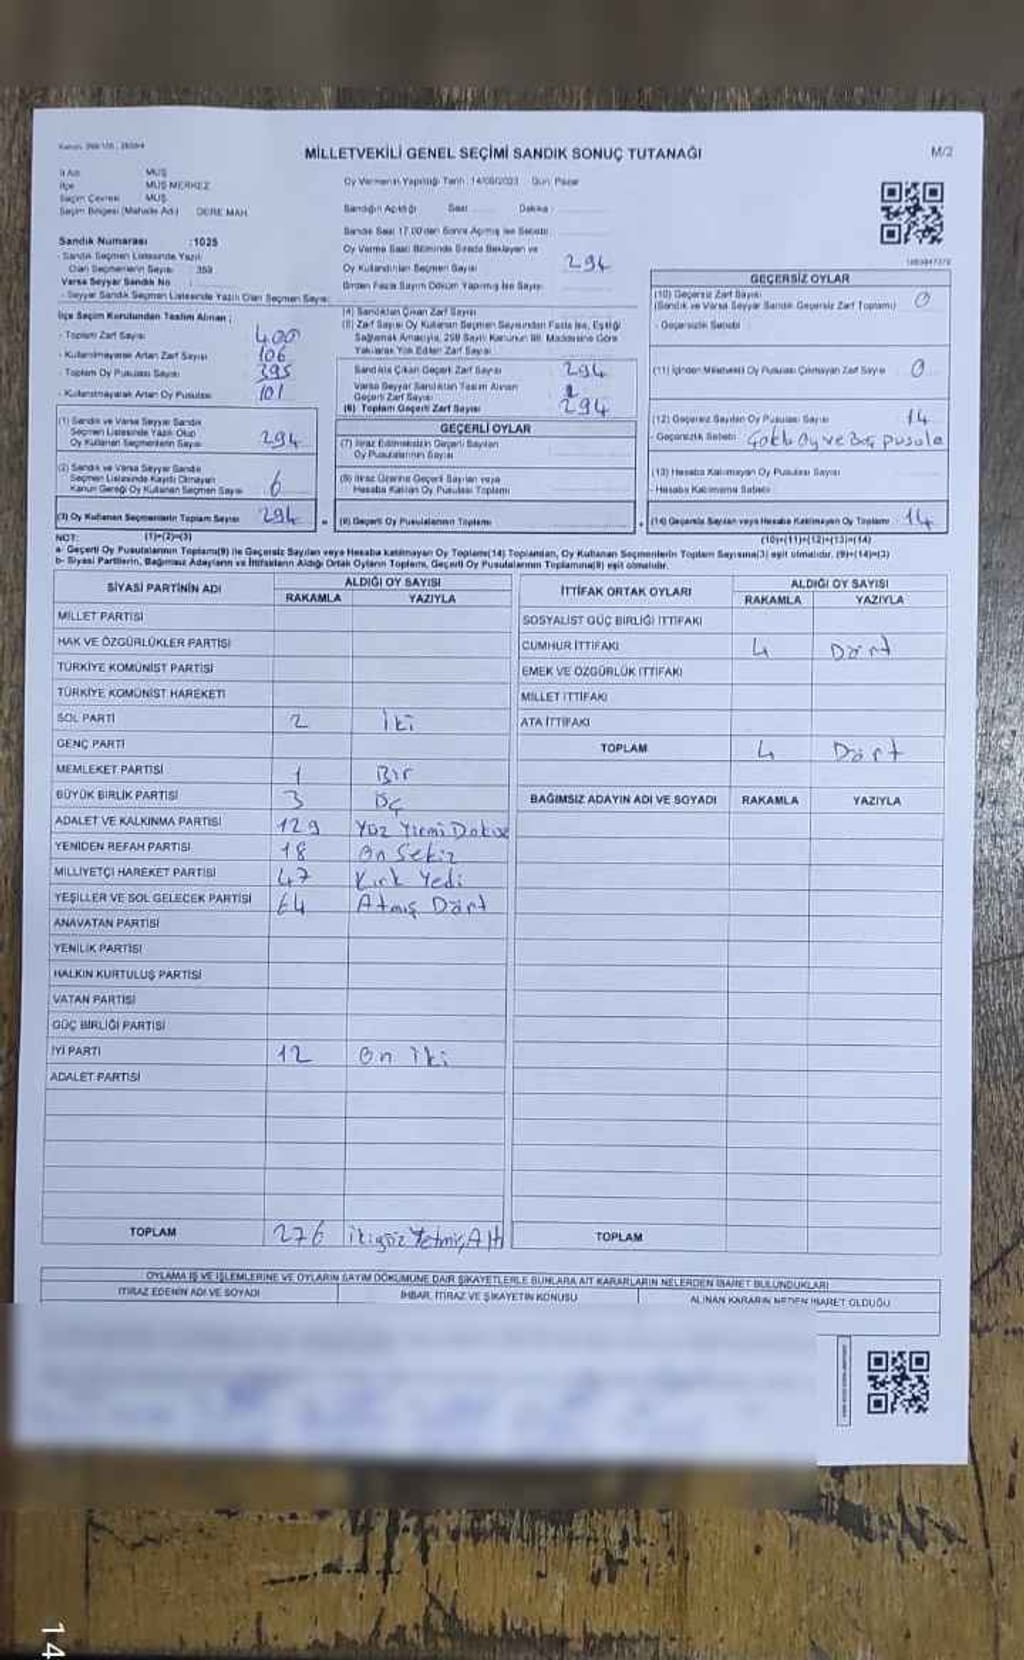 MİLLETVEKİLİ GENEL SEÇİMİ SANDIK SONUÇ TUTANAĞI
M/2
İl Adı MUŞ
İlçe MUŞ MERKEZ
Seçim Çevresi MUŞ
Seçim Bölgesi (Mahalle Adı) DERE MAH.
Sandık Numarası :1025
Sandık Seçmen Listesinde Yazılı
Olan Seçmenlerin Sayısı
Varsa Seyyar Sandık No
- Seyyar Sandık Seçmen Listesinde Yazılı Olan Seçmen Sayısı
İlçe Seçim Kurulundan Teslim Alınan ;
- Toplam Zarf Sayısı 400
- Kullanılmayarak Artan Zarf Sayısı 106
- Toplam Oy Pusulası Sayısı 395
- Kullanılmayarak Artan Oy Pusulası 101
(1) Sandık ve Varsa Seyyar Sandık
Seçmen Listesinde Yazılı Olup
Oy Kullanan Seçmenlerin Sayısı 294
(2) Sandık ve Varsa Seyyar Sandık
Seçmen Listesinde Kaydı Olmayan
Kanun Gereği Oy Kullanan Seçmen Sayısı
(3) Oy Kullanan Seçmenlerin Toplam Sayısı 294
Oy Vermenin Yapıldığı Tarih : 14/05/2023 Gün: Pazar
Sandığın Açıldığı Saat Dakika :
Sandık Saat 17.00'den Sonra Açılmış İse Sebebi
Oy Verme Saati Bitiminde Sırada Bekleyen ve
Oy Kullandırılan Seçmen Sayısı 294
Birden Fazla Sayım Döküm Yapılmış İse Sayısı
(4) Sandıktan Çıkan Zarf Sayısı
(5) Zarf Sayısı Oy Kullanan Seçmen Sayısından Fazla İse, Eşitliği
Sağlamak Amacıyla, 298 Sayılı Kanunun 98. Maddesine Göre
Yakılarak Yok Edilen Zarf Sayısı
Sandıkta Çıkan Geçerli Zarf Sayısı 294
Varsa Seyyar Sandıktan Teslim Alınan
Geçerli Zarf Sayısı
(6) Toplam Geçerli Zarf Sayısı 294
GEÇERLİ OYLAR
(7) İtiraz Edilmeksizin Geçerli Sayılan
Oy Pusulalarının Sayısı
(8) İtiraz Üzerine Geçerli Sayılan veya
Hesaba Katılan Oy Pusulası Toplamı
(9) Geçerli Oy Pusulalarının Toplamı
GEÇERSİZ OYLAR
(10) Geçersiz Zarf Sayısı
(Sandık ve Varsa Seyyar Sandık Geçersiz Zarf Toplamı) 0
- Geçersizlik Sebebi
(11) İçinden Milletvekili Oy Pusulası Çıkmayan Zarf Sayısı 0
(12) Geçersiz Sayılan Oy Pusulası Sayısı 14
- Geçersizlik Sebebi Çoklu Oy ve Boş pusula
(13) Hesaba Katılmayan Oy Pusulası Sayısı
- Hesaba Katılmama Sebebi
(14) Geçersiz Sayılan veya Hesaba Katılmayan Oy Toplamı 14
NOT: (1)+(2)=(3) (10)+(11)+(12)+(13)=(14)
a- Geçerli Oy Pusulalarının Toplamı(9) ile Geçersiz Sayılan veya Hesaba katılmayan Oy Toplamı(14) Toplamları, Oy Kullanan Seçmenlerin Toplam Sayısına(3) eşit olmalıdır. (9)+(14)=(3)
b- Siyasi Partilerin, Bağımsız Adayların ve İttifakların Aldığı Ortak Oyların Toplamı, Geçerli Oy Pusulalarının Toplamına(9) eşit olmalıdır.
SİYASİ PARTİNİN ADI ALDIĞI OY SAYISI
RAKAMLA YAZIYLA
MİLLET PARTİSİ
HAK VE ÖZGÜRLÜKLER PARTİSİ
TÜRKİYE KOMÜNİST PARTİSİ
TÜRKİYE KOMÜNİST HAREKETİ
SOL PARTİ 2 İki
GENÇ PARTİ
MEMLEKET PARTİSİ 1 Bir
BÜYÜK BİRLİK PARTİSİ 3 Üç
ADALET VE KALKINMA PARTİSİ 129 Yüz Yirmi Dokuz
YENİDEN REFAH PARTİSİ 18 On Sekiz
MİLLİYETÇİ HAREKET PARTİSİ 47 Kırk Yedi
YEŞİLLER VE SOL GELECEK PARTİSİ 64 Atmış Dört
ANAVATAN PARTİSİ
YENİLİK PARTİSİ
HALKIN KURTULUŞ PARTİSİ
VATAN PARTİSİ
GÜÇ BİRLİĞİ PARTİSİ
İYİ PARTİ 12 On iki
ADALET PARTİSİ
TOPLAM 276 İkiyüz Yetmiş Altı
İTTİFAK ORTAK OYLARI ALDIĞI OY SAYISI
RAKAMLA YAZIYLA
SOSYALİST GÜÇ BİRLİĞİ İTTİFAKI
CUMHUR İTTİFAKI 4 Dört
EMEK VE ÖZGÜRLÜK İTTİFAKI
MİLLET İTTİFAKI
ATA İTTİFAKI
TOPLAM 4 Dört
BAĞIMSIZ ADAYIN ADI VE SOYADI RAKAMLA YAZIYLA
TOPLAM
OYLAMA İŞ VE İŞLEMLERİNE VE OYLARIN SAYIM DÖKÜMÜNE DAİR ŞİKAYETLERLE BUNLARA AİT KARARLARIN NELERDEN İBARET BULUNDUKLARI
İTİRAZ EDENİN ADI VE SOYADI
İHBAR, İTİRAZ VE ŞİKAYETİN KONUSU
ALINAN KARARIN NEDEN İBARET OLDUĞU
14